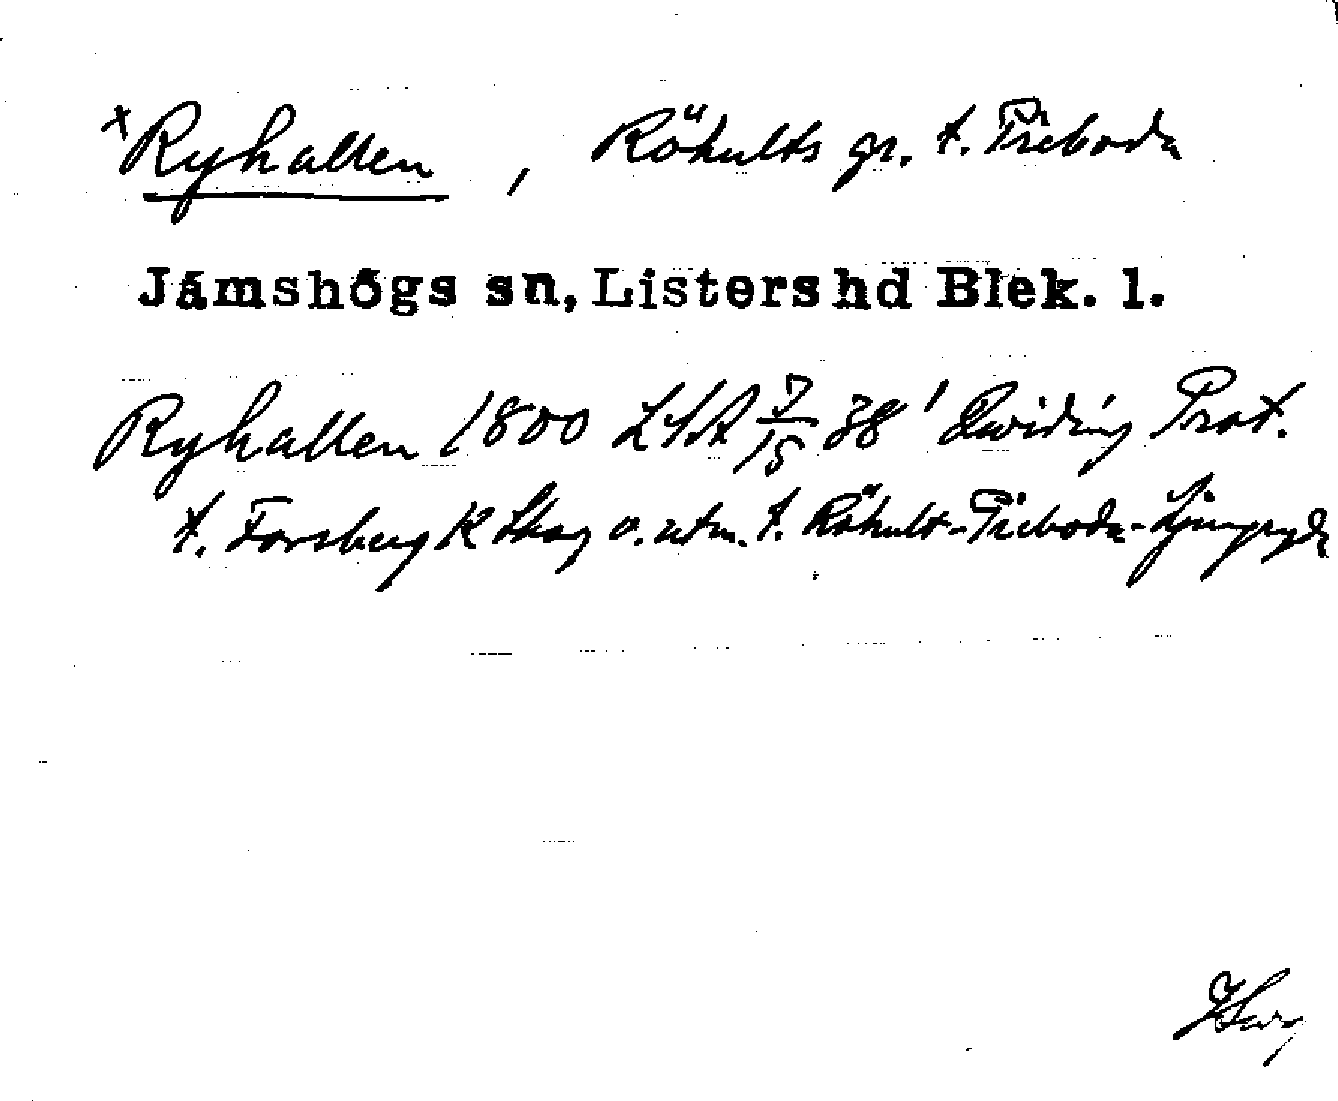 x Ryhallen, Rökults gr. t. Priboda
Jämshögs sn, Listers hd Blek. l.
Ryhallen 1800 LSA J/15 38' Prot.
t. Forsberg K Skog o. utm. t. Rökult-Priboda-Ljungryda